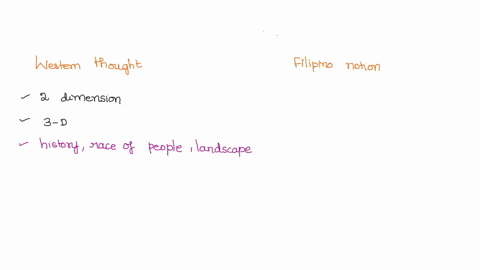 Western thought
Filipino notion
2 dimension
3-D
history, race of people, landscape